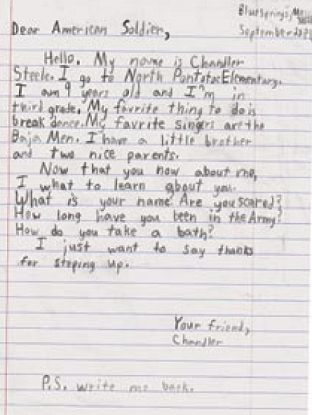 Blue Springs, Ms
September 202
Dear American Soldier,
Hello, My name is Chandler
Steele. I go to North Pontotoc Elementary.
I am 9 years old and I'm in
third grade. My favrite thing to do is
break dance. My favrite singers are the
Baja Men. I have a little brother
and two nice parents.
Now that you now about me,
I what to learn about you.
What is your name Are you scared?
How long have you been in the Army?
How do you take a bath?
I just want to say thanks
for steping up.
Your friend,
Chandler
P.S. write me back.